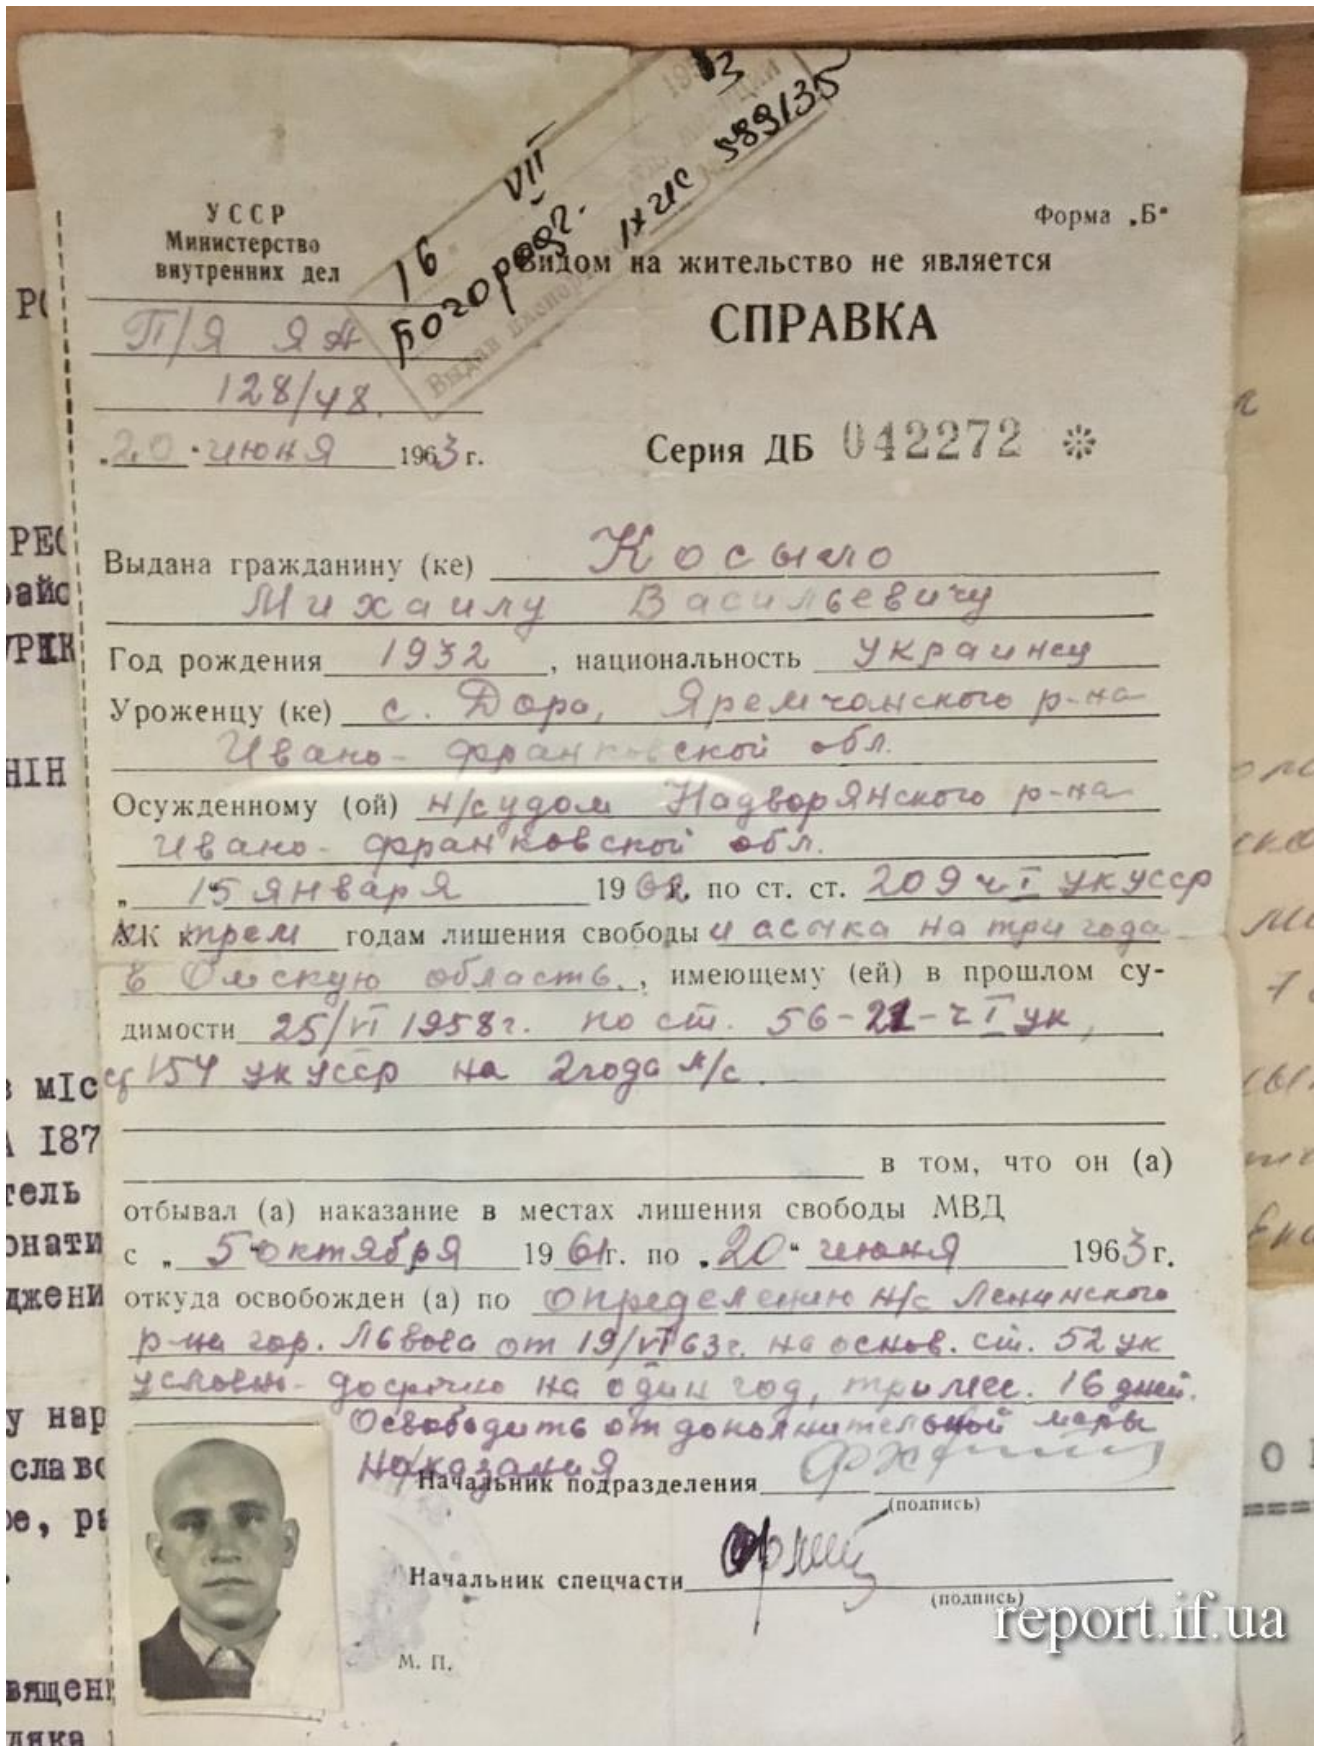 16 VII 1963
Богородч.
IX УС № 589135
Выдан паспорт
УССР
Министерство
внутренних дел
П/Я ЯА
128/48.
„20“ июня 1963 г.
Форма „Б“
Видом на жительство не является
СПРАВКА
Серия ДБ 042272
Выдана гражданину (ке) Косыло
Михаилу Васильевичу
Год рождения 1932, национальность украинец
Уроженцу (ке) с. Дора, Яремчанского р-на
Ивано-франковской обл.
Осужденному (ой) н/судом Надворянского р-на
Ивано-франковской обл.
„15 января 1962г. по ст. ст. 209 ч I УК УССР
УК к трем годам лишения свободы и ссылка на три года
в Омскую область, имеющему (ей) в прошлом су-
димости 25/VI 1958г. по ст. 56-21-ч I УК,
ст 154 УК УССР на 2 года л/с.
в том, что он (а)
отбывал (а) наказание в местах лишения свободы МВД
с „5 октября 1961г. по „20“ июня 1963 г.
откуда освобожден (а) по определению н/с Ленинского
р-на гор. Львова от 19/VI 63г. на основ. ст. 52 УК
условно-досрочно на один год, три мес. 16 дней.
Освободить от дополнительной меры
наказания
Начальник подразделения
(подпись)
Начальник спецчасти
(подпись)
М. П.
report.if.ua